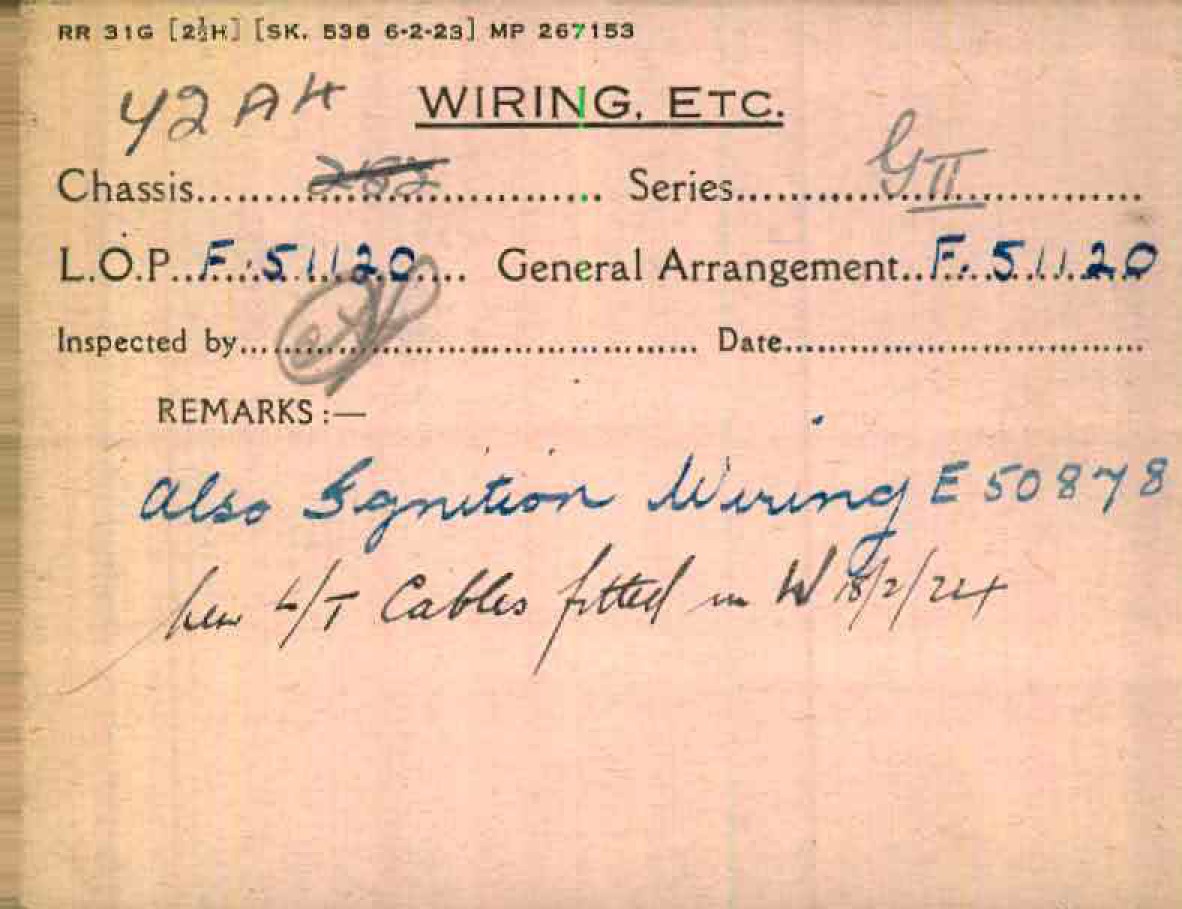 RR 31G [2½H] [SK. 538 6-2-23] MP 267153
42AH WIRING, ETC.
Chassis.............................. Series GII
L.O.P. F.51120 General Arrangement F.51120
Inspected by.............................. Date..............................
REMARKS :—
Also Ignition Wiring E50878
New L/T Cables fitted in W 18/2/24